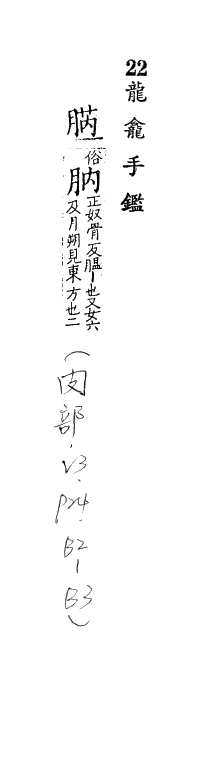 22龍龕手鑑
俗
肭正奴骨反膃丨也又女六
反月朔見東方也二
(肉部,V3.P24.B2-B3)